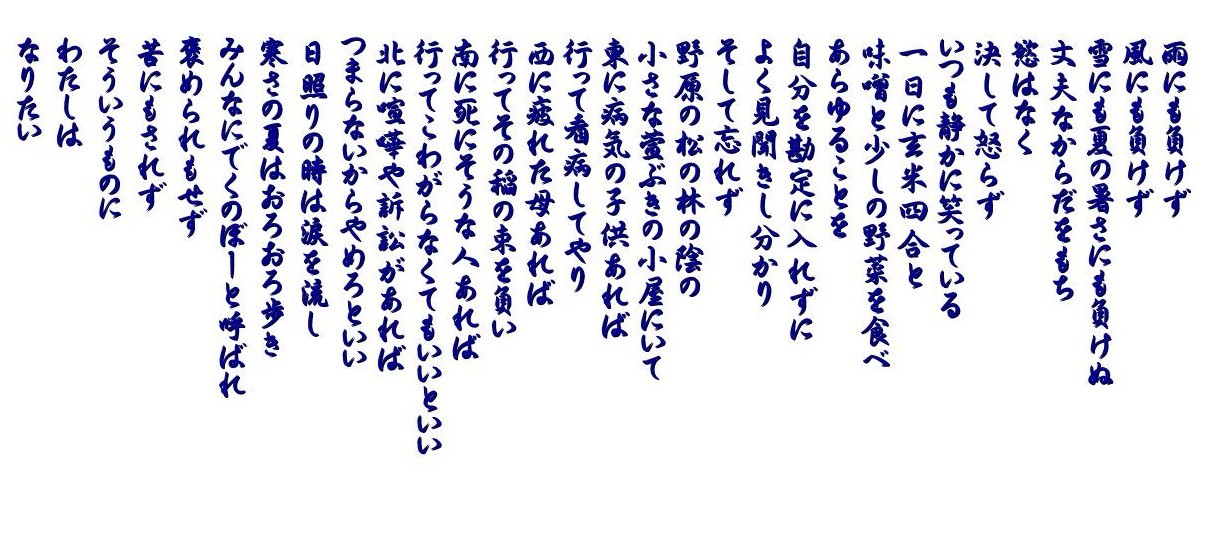 雨にも負けず
風にも負けず
雪にも夏の暑さにも負けぬ
丈夫なからだをもち
慾はなく
決して怒らず
いつも静かに笑っている
一日に玄米四合と
味噌と少しの野菜を食べ
あらゆることを
自分を勘定に入れずに
よく見聞きし分かり
そして忘れず
野原の松の林の陰の
小さな萱ぶきの小屋にいて
東に病気の子供あれば
行って看病してやり
西に疲れた母あれば
行ってその稲の束を負い
南に死にそうな人あれば
行ってこわがらなくてもいいといい
北に喧嘩や訴訟があれば
つまらないからやめろといい
日照りの時は涙を流し
寒さの夏はおろおろ歩き
みんなにでくのぼーと呼ばれ
褒められもせず
苦にもされず
そういうものに
わたしは
なりたい